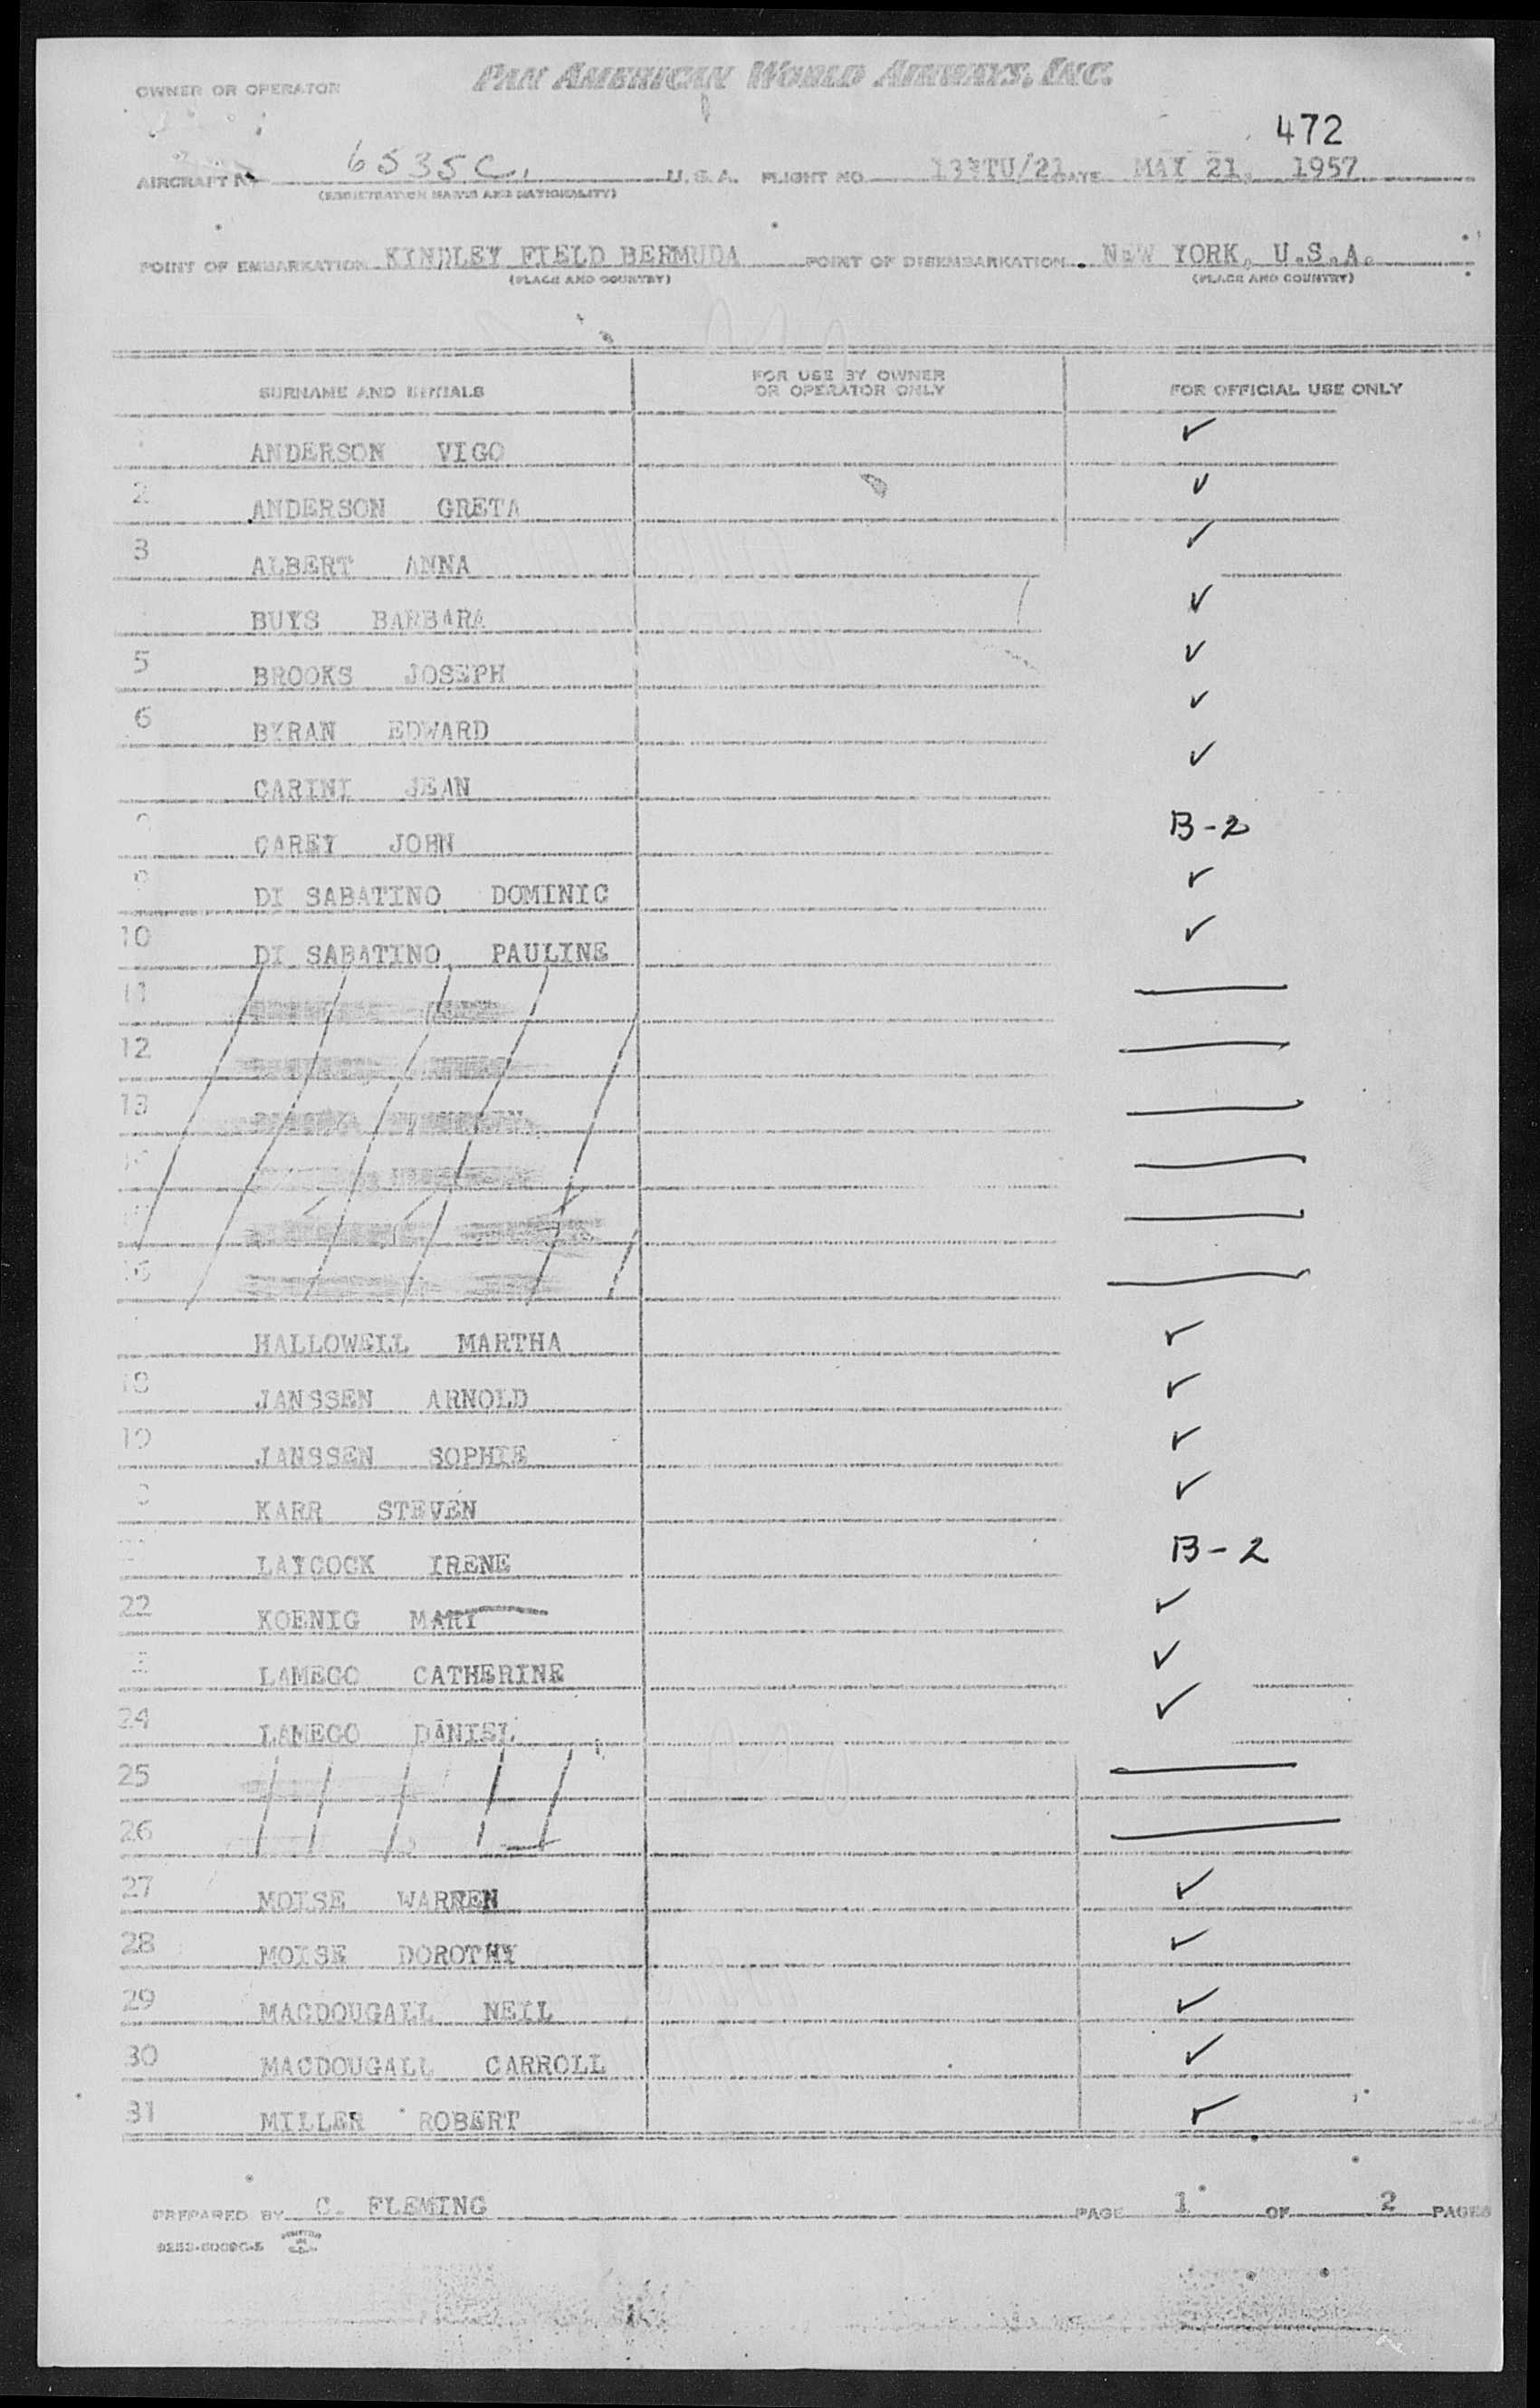 PAN AMERICAN WORLD AIRWAYS, INC.
OWNER OR OPERATOR
472
AIRCRAFT No 6535C. U.S.A. FLIGHT NO. DATE MAY 21, 1957
(REGISTRATION MARKS AND NATIONALITY)
POINT OF EMBARKATION KINDLEY FIELD BERMUDA POINT OF DISEMBARKATION. NEW YORK, U.S.A.
(PLACE AND COUNTRY) (PLACE AND COUNTRY)
SURNAME AND INITIALS FOR USE BY OWNER OR OPERATOR ONLY FOR OFFICIAL USE ONLY
ANDERSON VIGO ✓
2 ANDERSON GRETA ✓
3 ALBERT ANNA ✓
BUYS BARBARA ✓
5 BROOKS JOSEPH ✓
6 BYRAN EDWARD ✓
CARINI JEAN ✓
CAREY JOHN B-2
9 DI SABATINO DOMINIC ✓
10 DI SABATINO PAULINE ✓
11
12
13
16
HALLOWELL MARTHA ✓
18 JANSSEN ARNOLD ✓
19 JANSSEN SOPHIE ✓
KARR STEVEN ✓
LAYCOCK IRENE B-2
22 KOENIG MARY ✓
LAMEGO CATHERINE ✓
24 LAMEGO DANIEL ✓
25
26
27 MOISE WARREN ✓
28 MOISE DOROTHY ✓
29 MACDOUGALL NEIL ✓
30 MACDOUGALL CARROLL ✓
31 MILLER ROBERT ✓
PREPARED BY C. FLEMING PAGE 1 OF 2 PAGES